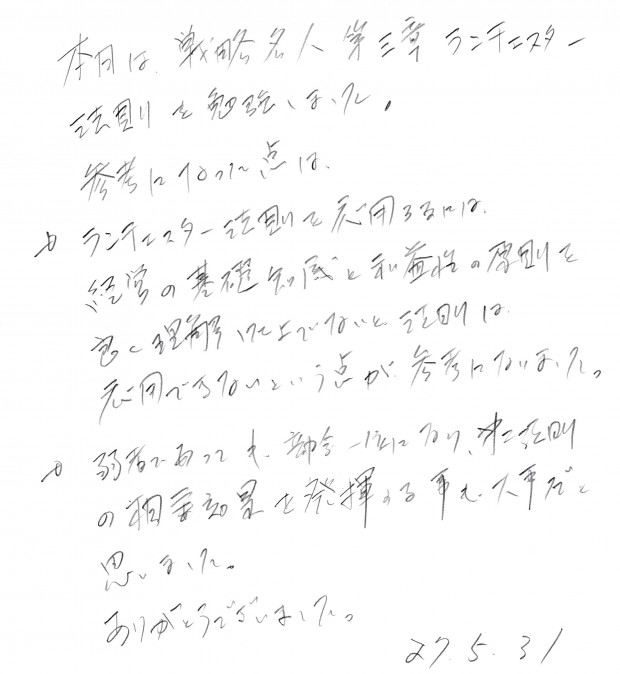 本日は、戦略名人 第三章 ランチェスター
法則を勉強しました。
参考になった点は、
ランチェスター法則を応用するには、
経営の基礎知識と利益性の原則を
良く理解した上でないと法則は
応用できないという点が参考になりました。
弱者であっても、部分一位になり、第二法則
の相乗効果を発揮する事も大事だと
思いました。
ありがとうございました。
27.5.31